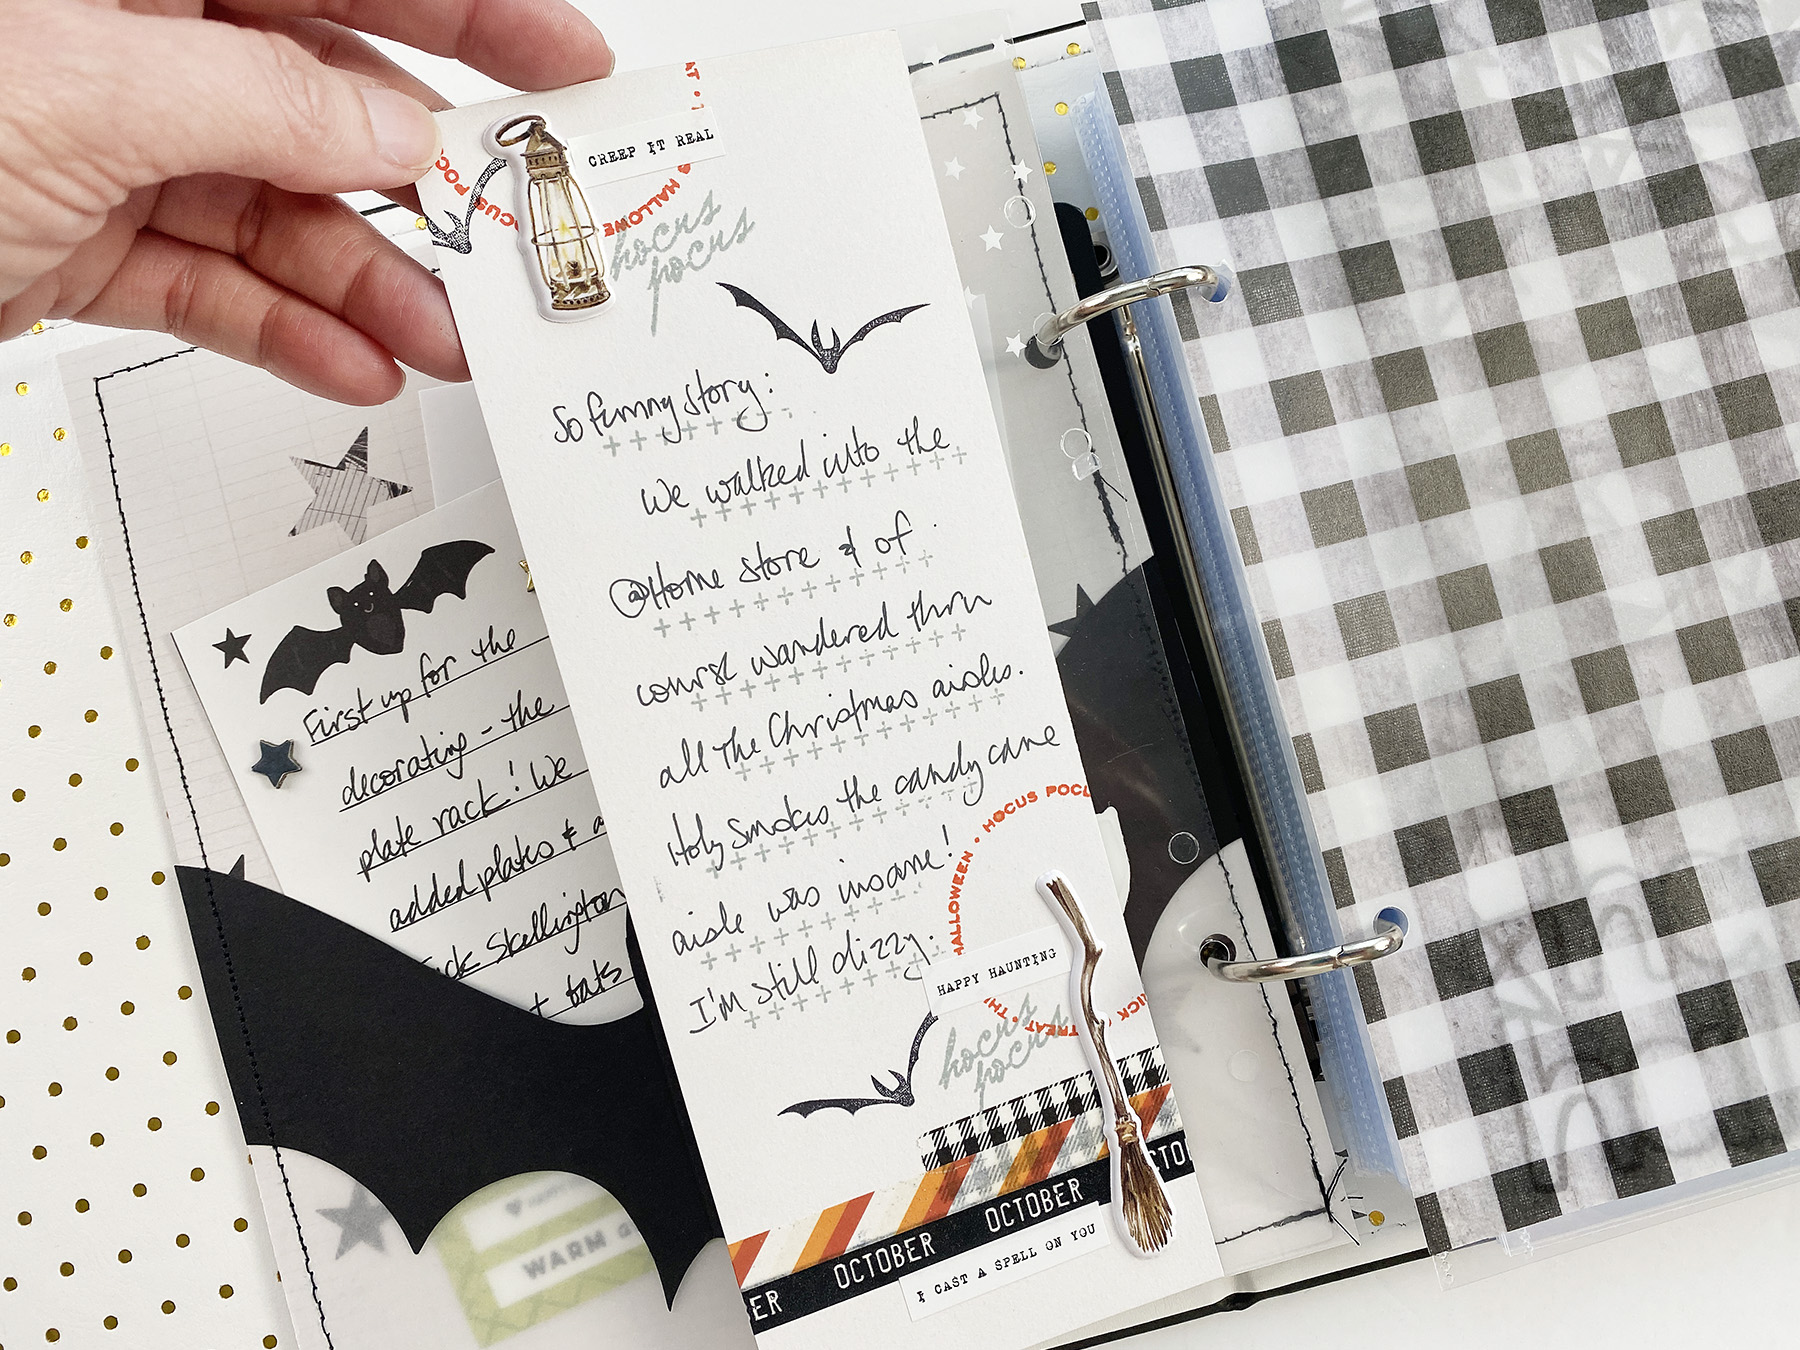 CREEP IT REAL
HOCUS POCUS
HALLOWE
hocus
pocus
So funny story:
We walked into the
@Home store & of
course wandered thru
all the Christmas aisles.
Holy Smokes the candy cane
aisle was insane!
I'm still dizzy.
HALLOWEEN • HOCUS POCU
HAPPY HAUNTING
TREAT • TH
hocus
pocus
OCTOBER OCTOBER CTO
ER
I CAST A SPELL ON YOU
First up for the
decorating - the
plate rack! We
added plates & a
ck Skellington
t bats
WARM